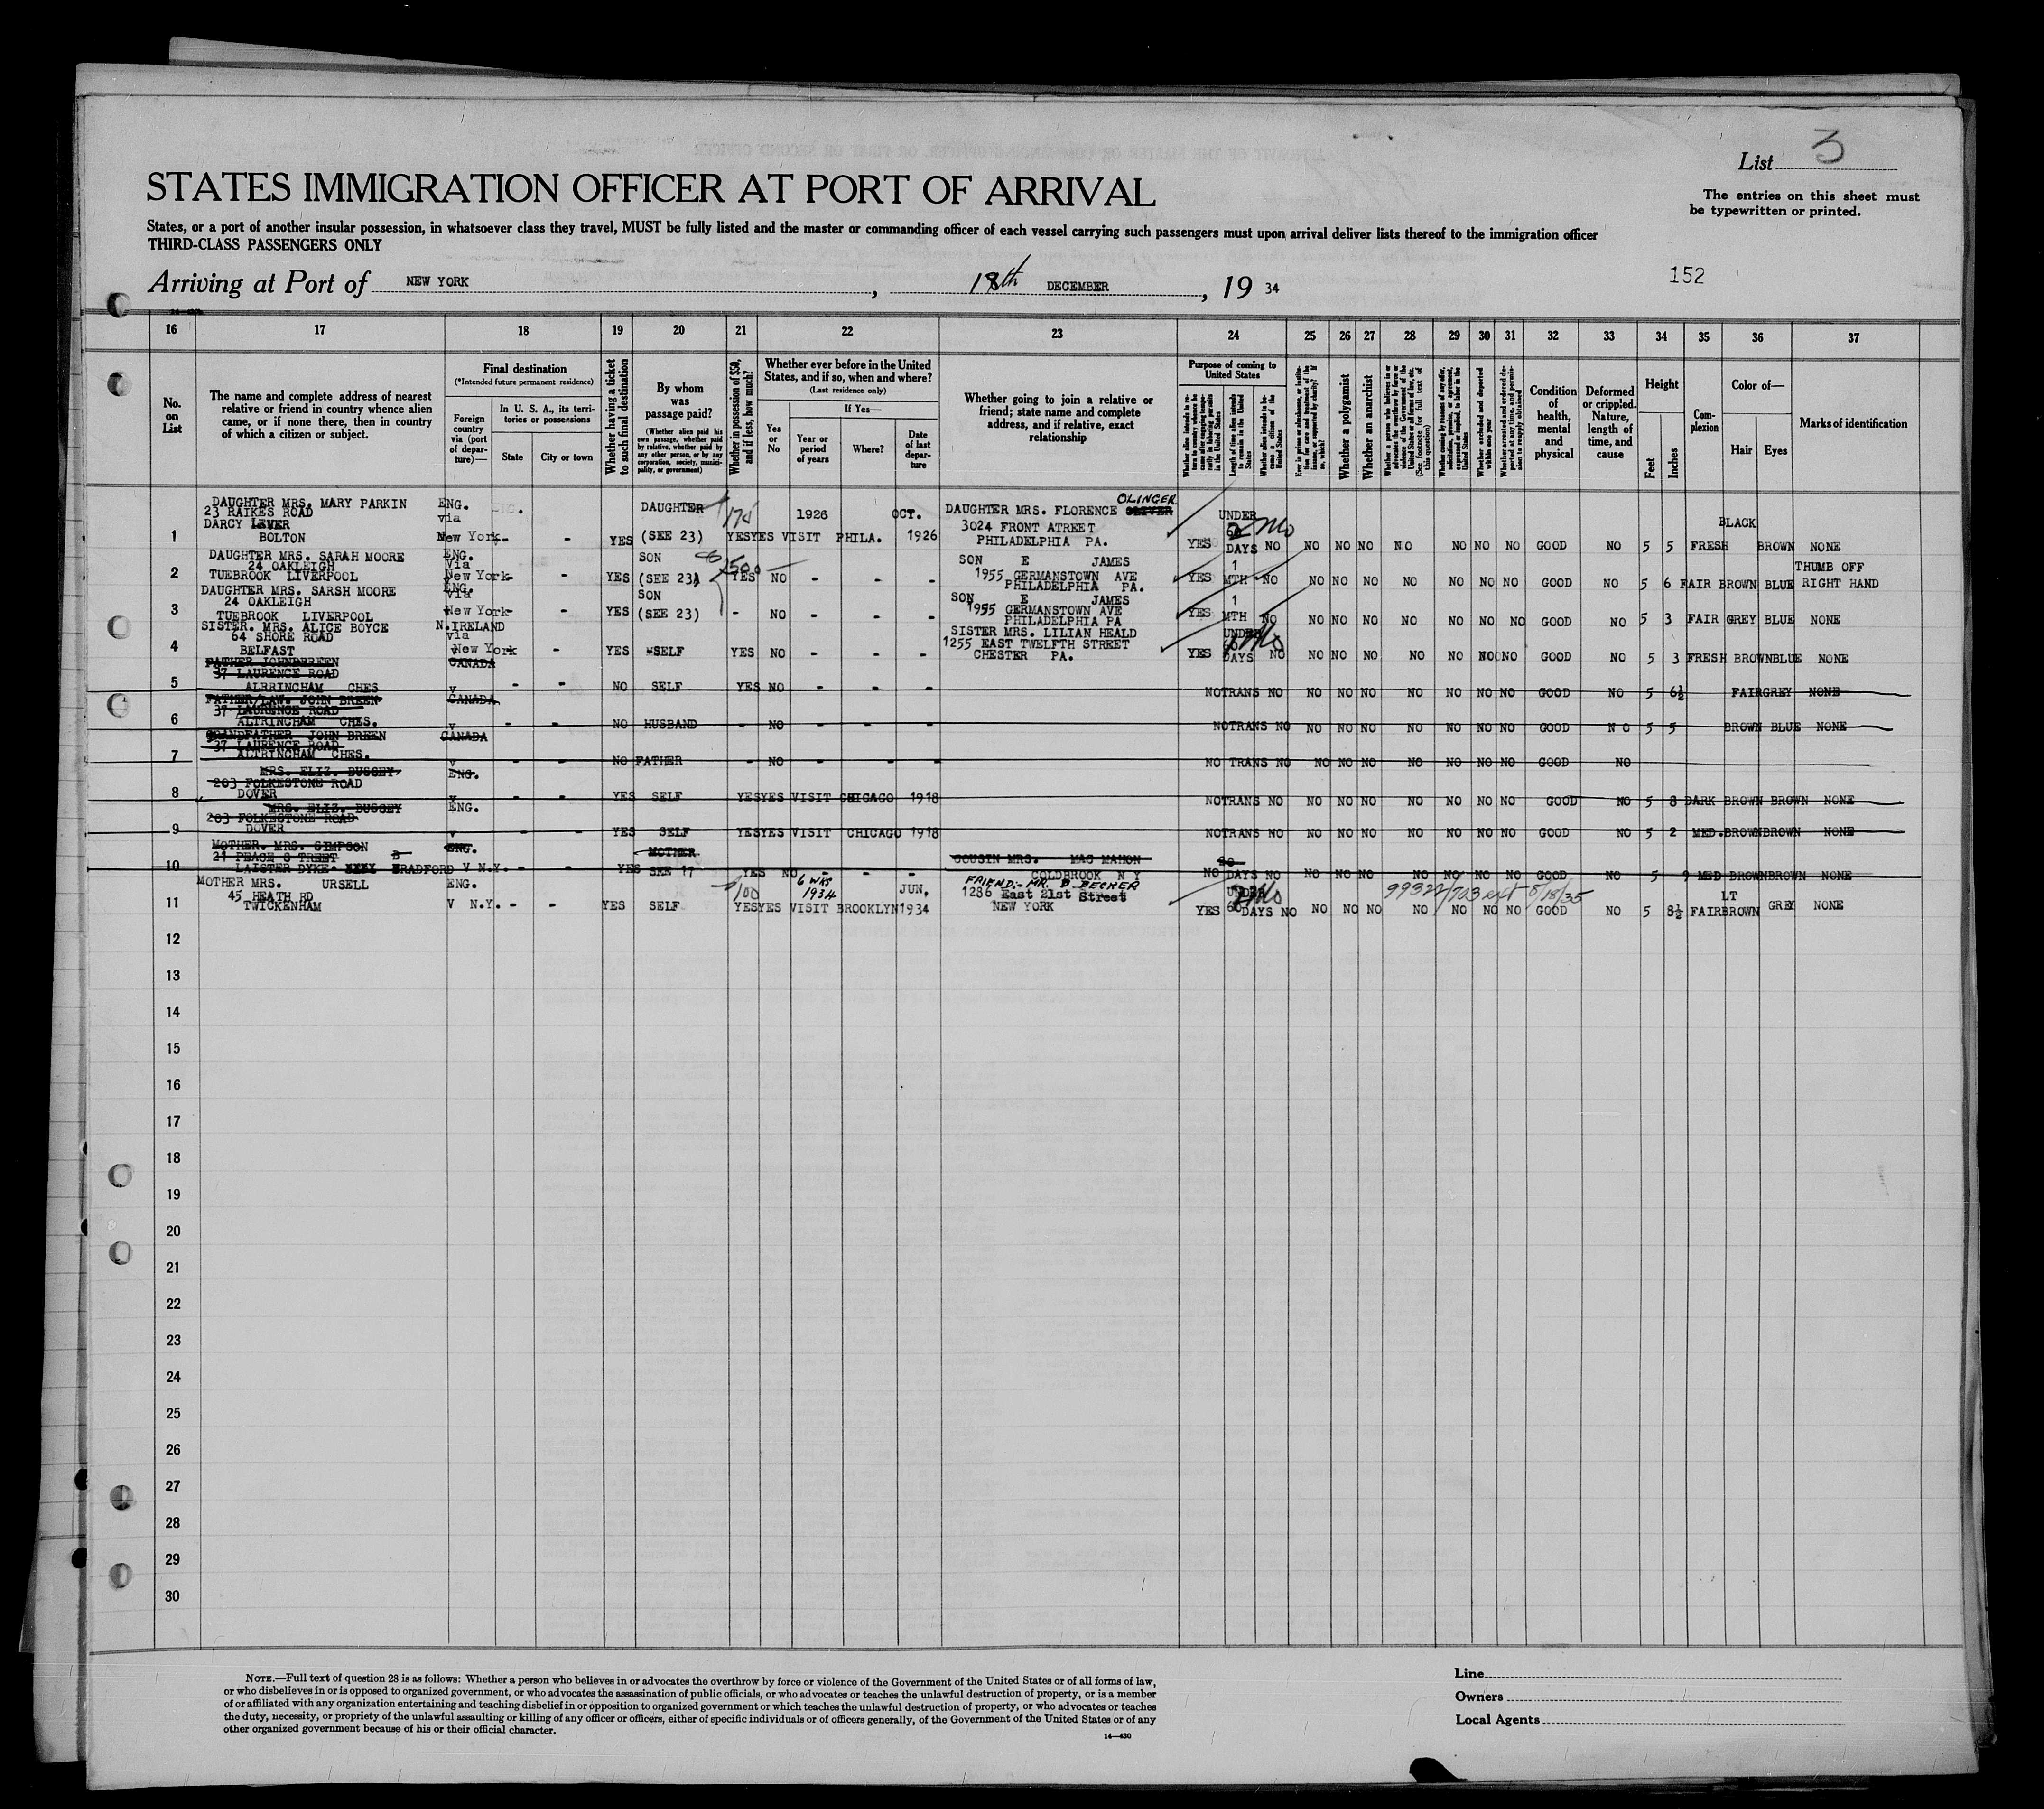 List 3
The entries on this sheet must
be typewritten or printed.
STATES IMMIGRATION OFFICER AT PORT OF ARRIVAL
States, or a port of another insular possession, in whatsoever class they travel, MUST be fully listed and the master or commanding officer of each vessel carrying such passengers must upon arrival deliver lists thereof to the immigration officer
THIRD-CLASS PASSENGERS ONLY
152
Arriving at Port of NEW YORK, 18th DECEMBER, 19 34
16 17 18 19 20 21 22 23 24 25 26 27 28 29 30 31 32 33 34 35 36 37
No. on List
The name and complete address of nearest relative or friend in country whence alien came, or if none there, then in country of which a citizen or subject.
Final destination
(*Intended future permanent residence)
Foreign country via (port of departure)—
In U. S. A., its territories or possessions
State City or town
Whether having a ticket to such final destination
By whom was passage paid?
(Whether alien paid his own passage, whether paid by relative, whether paid by any other person, or by any corporation, society, municipality, or government)
Whether in possession of $50, and if less, how much?
Whether ever before in the United States, and if so, when and where?
(Last residence only)
Yes or No
If Yes—
Year or period of years Where? Date of last departure
Whether going to join a relative or friend; state name and complete address, and if relative, exact relationship
Purpose of coming to United States
Whether alien intends to return to country whence he came after engaging temporarily in laboring pursuits in the United States
Length of time alien intends to remain in the United States
Whether alien intends to become a citizen of the United States
Ever in prison or almshouse, or institution for care and treatment of the insane, or supported by charity? If so, which?
Whether a polygamist
Whether an anarchist
Whether a person who believes in or advocates the overthrow by force or violence of the Government of the United States or all forms of law, etc. (See footnote for full text of this question)
Whether coming by reason of any offer, solicitation, promise, or agreement, expressed or implied, to labor in the United States
Whether excluded and deported within one year
Whether arrested and ordered deported at any time, and permission to reapply obtained
Condition of health, mental and physical
Deformed or crippled. Nature, length of time, and cause
Height
Feet Inches
Complexion
Color of—
Hair Eyes
Marks of identification
DAUGHTER MRS. MARY PARKIN ENG. DAUGHTER 175 1926 OCT. DAUGHTER MRS. FLORENCE OLINGER UNDER BLACK
23 RAIKES ROAD via 3024 FRONT ATREET
DARCY LEVER
1 BOLTON New York - - YES (SEE 23) YES YES VISIT PHILA. 1926 PHILADELPHIA PA. YES 60 DAYS 2 Mo NO NO NO NO NO NO NO NO GOOD NO 5 5 FRESH BROWN NONE
DAUGHTER MRS. SARAH MOORE ENG. SON 500 SON E JAMES 1 THUMB OFF
24 OAKLEIGH Via
2 TUEBROOK LIVERPOOL New York - - YES (SEE 23) YES NO - - - 1955 GERMANSTOWN AVE PHILADELPHIA PA. YES MTH NO NO NO NO NO NO NO NO GOOD NO 5 6 FAIR BROWN BLUE RIGHT HAND
DAUGHTER MRS. SARSH MOORE ENG. SON SON E JAMES 1
24 OAKLEIGH Via
3 TUEBROOK LIVERPOOL New York - YES (SEE 23) - NO - - - 1955 GERMANSTOWN AVE PHILADELPHIA PA YES MTH NO NO NO NO NO NO NO NO GOOD NO 5 3 FAIR GREY BLUE NONE
SISTER. MRS. ALICE BOYCE N.IRELAND SISTER MRS. LILIAN HEALD UNDER
64 SHORE ROAD via 1255 EAST TWELFTH STREET
4 BELFAST New York - YES SELF YES NO - - - CHESTER PA. YES 60 DAYS NO NO NO NO NO NO NO NO GOOD NO 5 3 FRESH BROWN BLUE NONE
FATHER JOHN BREEN CANADA
37 LAURENCE ROAD
5 ALRRINGHAM CHES v - - NO SELF YES NO - - - NO TRANS NO NO NO NO NO NO NO NO GOOD NO 5 6½ FAIR GREY NONE
FATHER/LAW. JOHN BREEN CANADA
37 LAURENCE ROAD
6 ALTRINGHAM CHES. v - - NO HUSBAND - NO - - - NO TRANS NO NO NO NO NO NO NO NO GOOD N O 5 5 BROWN BLUE NONE
GRANDFATHER JOHN BREEN CANADA
37 LAURENCE ROAD
7 ALTRINGHAM CHES. v - - NO FATHER - NO - - - NO TRANS NO NO NO NO NO NO NO NO GOOD NO
MRS. ELIZ. BUSSEY ENG.
203 FOLKESTONE ROAD
8 DOVER v - - YES SELF YES YES VISIT CHICAGO 1918 NO TRANS NO NO NO NO NO NO NO NO GOOD NO 5 8 DARK BROWN BROWN NONE
MRS. ELIZ. BUSSEY ENG.
203 FOLKESTONE ROAD
9 DOVER v - - YES SELF YES YES VISIT CHICAGO 1918 NO TRANS NO NO NO NO NO NO NO NO GOOD NO 5 2 MED. BROWN BROWN NONE
MOTHER. MRS. SIMPSON ENG. MOTHER COUSIN MRS. MAC MAHON
21 PEACE STREET
10 LAISTER DYKE BRADFORD V N.Y. - - YES SEE 17 YES NO - - - COLDBROOK N Y NO DAYS NO NO NO NO NO NO NO NO GOOD NO 5 9 MED BROWN BROWN NONE
MOTHER MRS. URSELL ENG. 100 6 WKS 1934 JUN. FRIEND:- MR. B BECKER UNDER 2 Mo 8/18/35 LT
45 HEATH RD 1286 East 21st Street
11 TWICKENHAM V N.Y. - - YES SELF YES YES VISIT BROOKLYN 1934 NEW YORK YES 60 DAYS NO NO NO NO NO NO NO NO GOOD NO 5 8½ FAIR BROWN GREY NONE
12
13
14
15
16
17
18
19
20
21
22
23
24
25
26
27
28
29
30
NOTE.—Full text of question 28 is as follows: Whether a person who believes in or advocates the overthrow by force or violence of the Government of the United States or of all forms of law,
or who disbelieves in or is opposed to organized government, or who advocates the assassination of public officials, or who advocates or teaches the unlawful destruction of property, or is a member
of or affiliated with any organization entertaining and teaching disbelief in or opposition to organized government or which teaches the unlawful destruction of property, or who advocates or teaches
the duty, necessity, or propriety of the unlawful assaulting or killing of any officer or officers, either of specific individuals or of officers generally, of the Government of the United States or of any
other organized government because of his or their official character.
14—430
Line
Owners
Local Agents